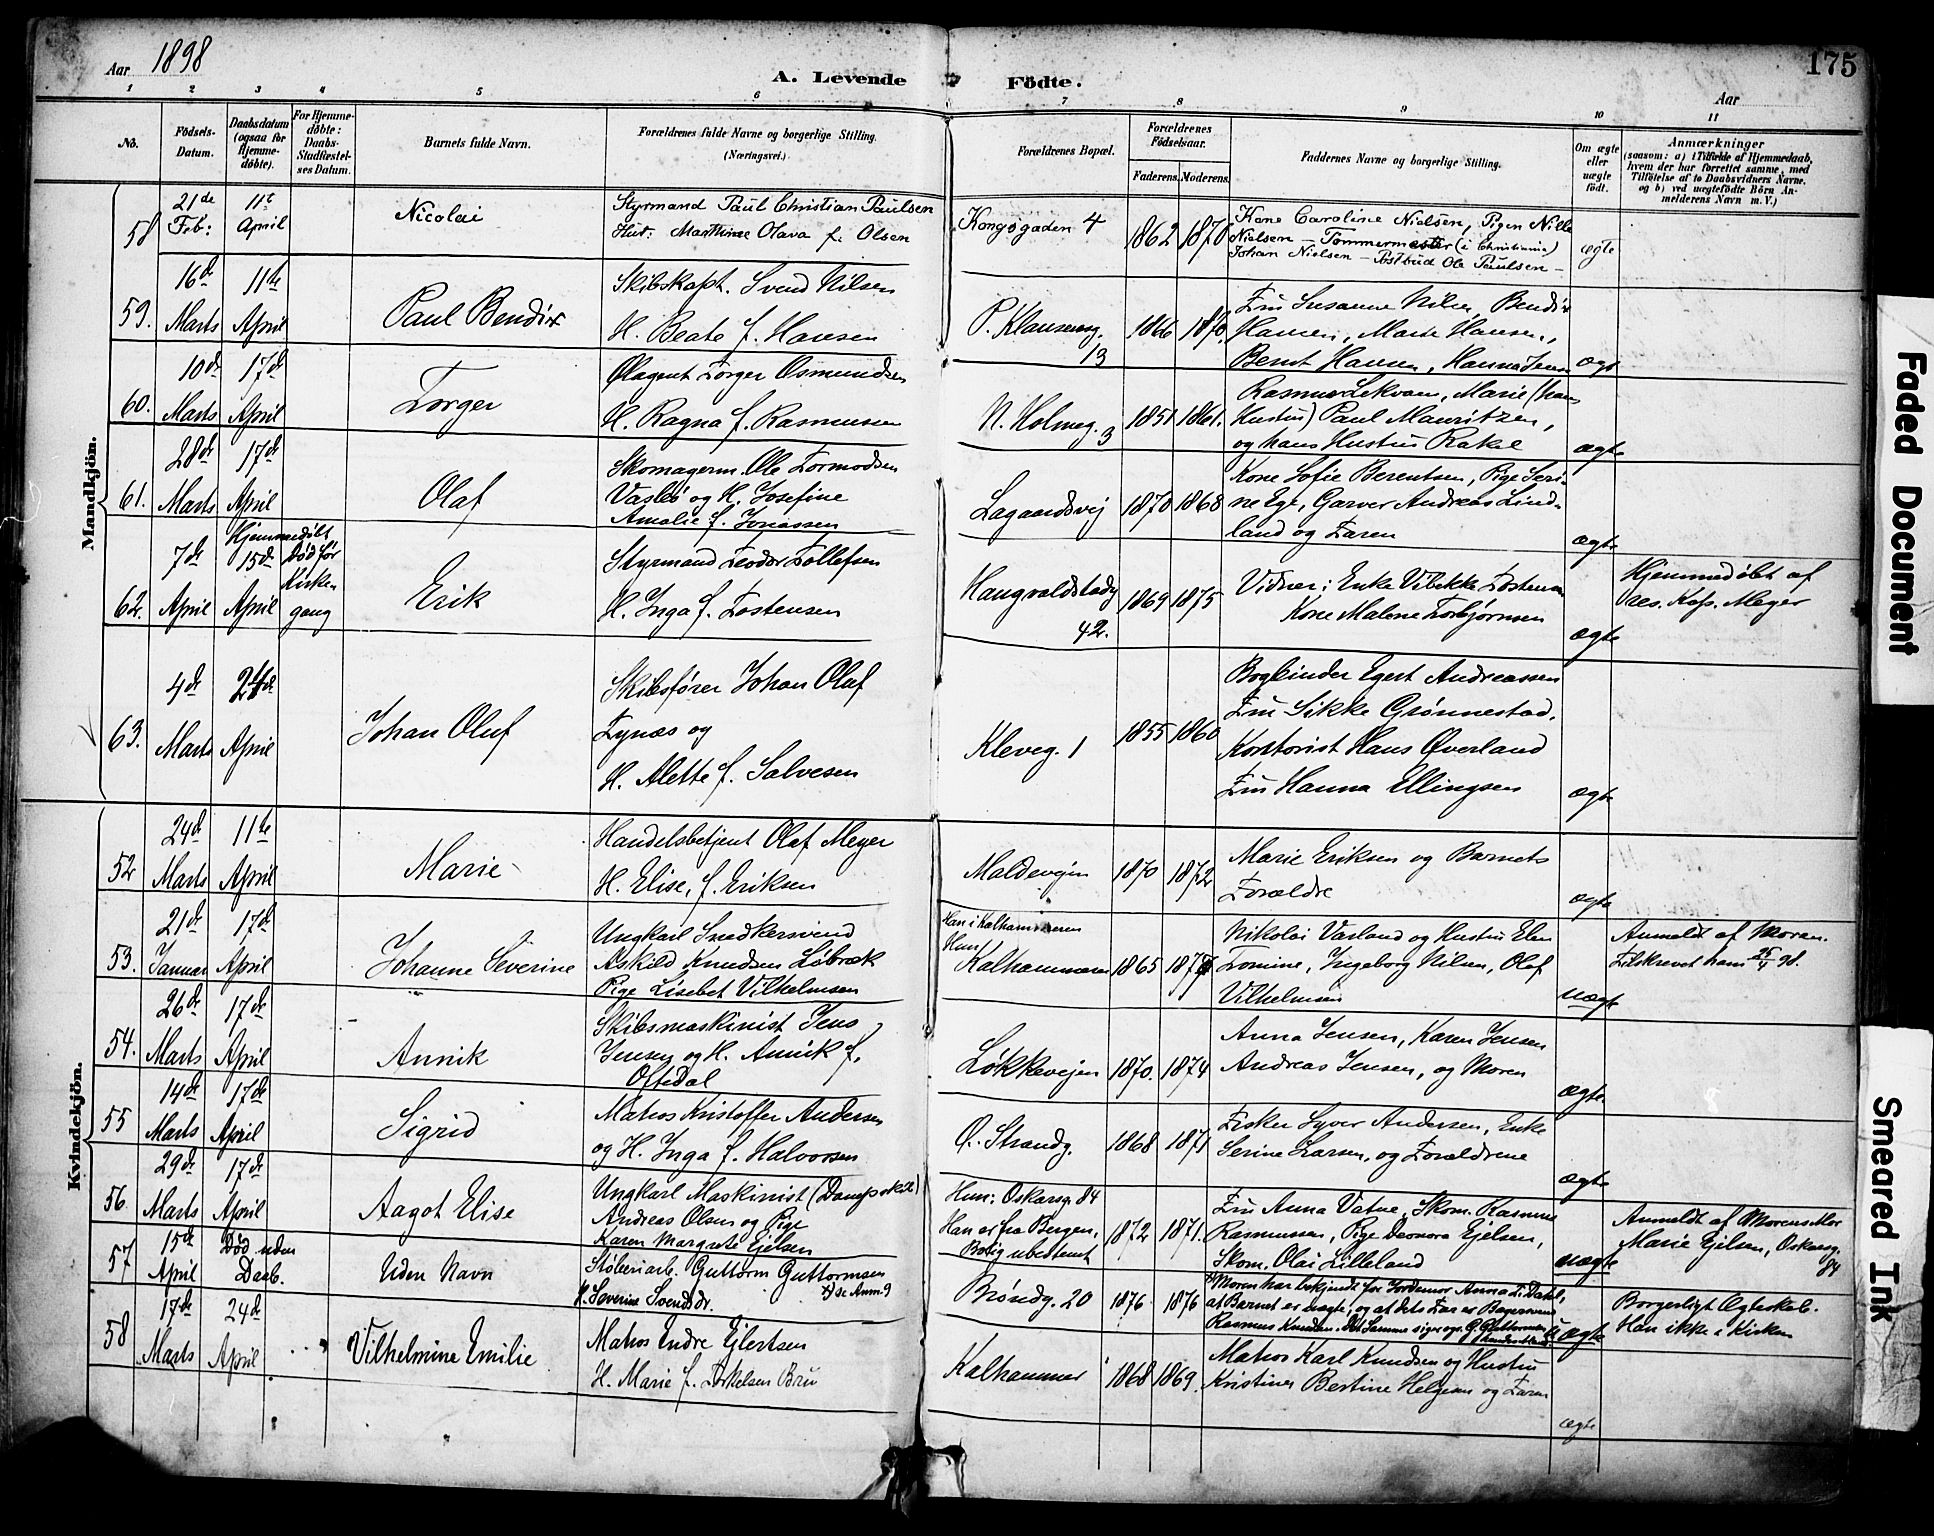 Aar 1898
A. Levende Födte.
175
Aar
1 2 3 4 5 6 7 8 9 10 11
No.
Födsels-Datum.
Daabsdatum (ogsaa for Hjemme-døbte).
For Hjemme-døbte: Daabs-Stadfæstel-ses Datum.
Barnets fulde Navn.
Forældrenes fulde Navne og borgerlige Stilling. (Næringsvei.)
Forældrenes Bopæl.
Forældrenes Fødselsaar.
Faderens. Moderens.
Faddernes Navne og borgerlige Stilling.
Om ægte eller uægte født.
Anmærkninger
(saasom: a) i Tilfælde af Hjemmedaab, hvem der har forrettet samme, med Tilføielse af to Daabsvidners Navne. og b) ved uægtefødte Børn An-melderens Navn m. V.)
Mandkjön.
58 21de Feb: 11te April Nicolai
Styrmand Paul Christian Paulsen
Hut: Marthine Olava f. Olsen
Kongsgaden 4 1862 1870
Kone Caroline Nielsen, Pigen Nille
Nielsen - Tømmermester (i Christiania)
Johan Nielsen - Postbud Ole Paulsen -
ægte
59. 16de Marts 11te April Paul Bendix
Skibskapt. Svend Nilsen
H. Beate f. Hansen
P. Klausensg. 13 1866 1870.
Fru Susanne Nilsen, Bendix
Hansen, Marte Hansen,
Bernt Hansen, Hanna Jensen
ægte
60. 10de Marts 17de April Torger
Ølagent Torger Osmundsen
H. Ragna f. Rasmussen
N. Holmeg. 3 1851 1861.
Rasmus Lekvam, Marie (hans
Hustru) Paul Mauritzen,
og hans Hustru Rakel
ægte
61. 28de Marts 17de April Olaf
Skomagerm. Ole Tormodsen
Vasbø og H. Josefine
Amalie f. Jonassen
Lagaardsvej 1870 1868
Kone Sofie Berentsen, Pige Seri-
ne Ege, Garver Andreas Lind-
land og Faren
ægte
62. 7de April Hjemmedøbt 15de April Død før Kirken gang Erik
Styrmand Teodor Tollefsen
H. Inga f. Tostensen
Haugvaldstadg 42. 1869 1875
Vidner: Enke Vibekke Tostensen
Kone Malene Torbjørnsen
ægte
Hjemmedøbt af
res. Kap. Meyer
63. 4de Marts 24de April Johan Oluf
Skibsfører Johan Oluf
Lynæs og
H. Alette f. Salvesen
Kleveg. 1 1855 1860
Bogbinder Egert Andreassen
Fru Sikke Grønnestad.
Kontorist Hans Øverland
Fru Hanna Ellingsen
ægte
Kvindekjön.
52 24de Marts 11te April Marie
Handelsbetjent Olaf Meyer
H. Elise, f. Eriksen
Maldevejen 1870 1872
Marie Eriksen og Barnets
Forældre
ægte
53. 21de Januar 17de April Johanne Severine
Ungkarl Snedkersvend
Askild Knudsen Løbræk
Pige Lisebet Vilhelmsen
Han i Kalhammeren
Hun Kalhammeren 1865 1877
Nikolai Varland og Hustru Elen
Tomine, Ingeborg Nilsen, Olaf
Vilhelmsen
uægte
Anmeldt af Moren.
Tilskrevet ham 25/4 98.
54. 26de Marts 17de April Annik
Skibsmaskinist Jens
Jensen og H. Annik f.
Oftedal
Løkkevejen 1870. 1874
Anna Jensen, Karen Jensen
Andreas Jensen, og Moren
ægte
55 14de Marts 17de April Sigrid
Matros Kristoffer Andersen
og H. Inga f. Halvorsen
Ø. Strandg. 1868 1871
Fisker Syver Andersen, Enke
Serine Larsen, og Forældrene
ægte
56. 29de Marts 17de April Aagot Elise
Ungkarl Maskinist (Dampskib)
Andreas Olsen og Pige
Karen Margrete Ejelsen
Hun: Oskarsg. 84
Han er fra Bergen,
Bolig ubestemt 1872 1871.
Fru Anna Vatne, Skom. Rasmus
Rasmussen, Pige Leonora Ejelsen,
Skom. Olai Lilleland
uægte
Anmeldt af Morens Mor
Marie Ejelsen, Oskarsg.
84
57 15de April Død uden Daab. Uden Navn
Støberiarb. Guttorm Guttormsen
H. Severine Svendsdr.
Brøndg. 20 1876 1876
Moren har bekjendt for Jordemor Anna L. Dahl,
at Barnet er uægte, og at dets Far er Bagersvend
Rasmus Knudsen. Det Samme siger og. G. Guttormsen
ægte
Borgerligt Ægteskab.
Han ikke i Kirken
58 17de Marts 24de April Vilhelmine Emilie
Matros Endre Ejlertsen
H. Marie f. Torkelsen Bru
Kalhammer 1868 1869.
Matros Karl Knudsen og Hustru
Kristine, Bertine Helgesen og Faren
ægte
Faded Document
Smeared Ink